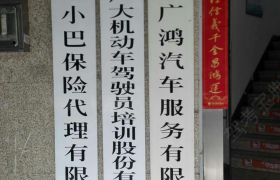 小巴保险代理有限
大机动车驾驶员培训股份有
广鸿汽车服务有限
信義千金昌鴻運